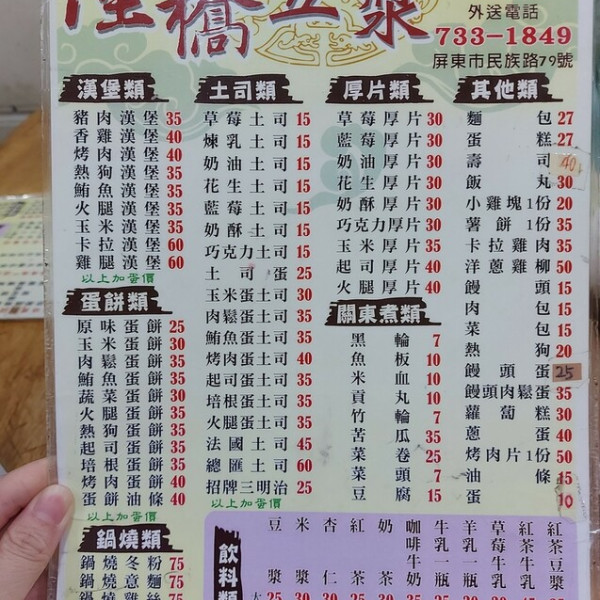 橋豆漿
外送電話
733-1849
屏東市民族路79號
漢堡類
豬肉漢堡 35
香雞漢堡 40
烤肉漢堡 40
熱狗漢堡 35
鮪魚漢堡 35
火腿漢堡 35
玉米漢堡 35
卡拉漢堡 60
雞腿漢堡 60
以上加蛋價
蛋餅類
原味蛋餅 25
玉米蛋餅 30
肉鬆蛋餅 35
鮪魚蛋餅 35
蔬菜蛋餅 30
火腿蛋餅 35
熱狗蛋餅 35
起司蛋餅 35
培根蛋餅 35
烤肉蛋餅 40
蛋餅油條 40
以上加蛋價
鍋燒類
鍋燒冬粉 75
鍋燒意麵 75
土司類
草莓土司 15
煉乳土司 15
奶油土司 15
花生土司 15
藍莓土司 15
奶酥土司 15
巧克力土司 15
土司蛋 25
玉米蛋土司 30
肉鬆蛋土司 35
鮪魚蛋土司 35
烤肉蛋土司 40
起司蛋土司 35
培根蛋土司 35
火腿蛋土司 35
法國土司 45
總匯土司 60
招牌三明治 25
以上加蛋價
厚片類
草莓厚片 30
藍莓厚片 30
奶油厚片 30
花生厚片 30
奶酥厚片 30
巧克力厚片 30
玉米厚片 35
起司厚片 40
火腿厚片 40
關東煮類
黑輪 7
魚板 10
米血 10
貢丸 10
竹輪 7
苦瓜 35
菜卷 25
菜頭 7
豆腐 15
其他類
麵包 27
蛋糕 27
壽司 40
飯丸 30
小雞塊1份 20
薯餅1份 35
卡拉雞肉 35
洋蔥雞柳 50
饅頭 15
肉包 15
菜包 15
熱狗 20
饅頭蛋 25
饅頭肉鬆蛋 35
蘿蔔糕 30
蔥蛋 40
烤肉片1份 50
油條 15
蛋 10
飲料類
豆漿
米漿
杏仁
紅茶
奶茶
咖啡牛奶
牛乳一瓶
羊乳一瓶
草莓牛乳
紅茶牛乳
紅茶豆漿